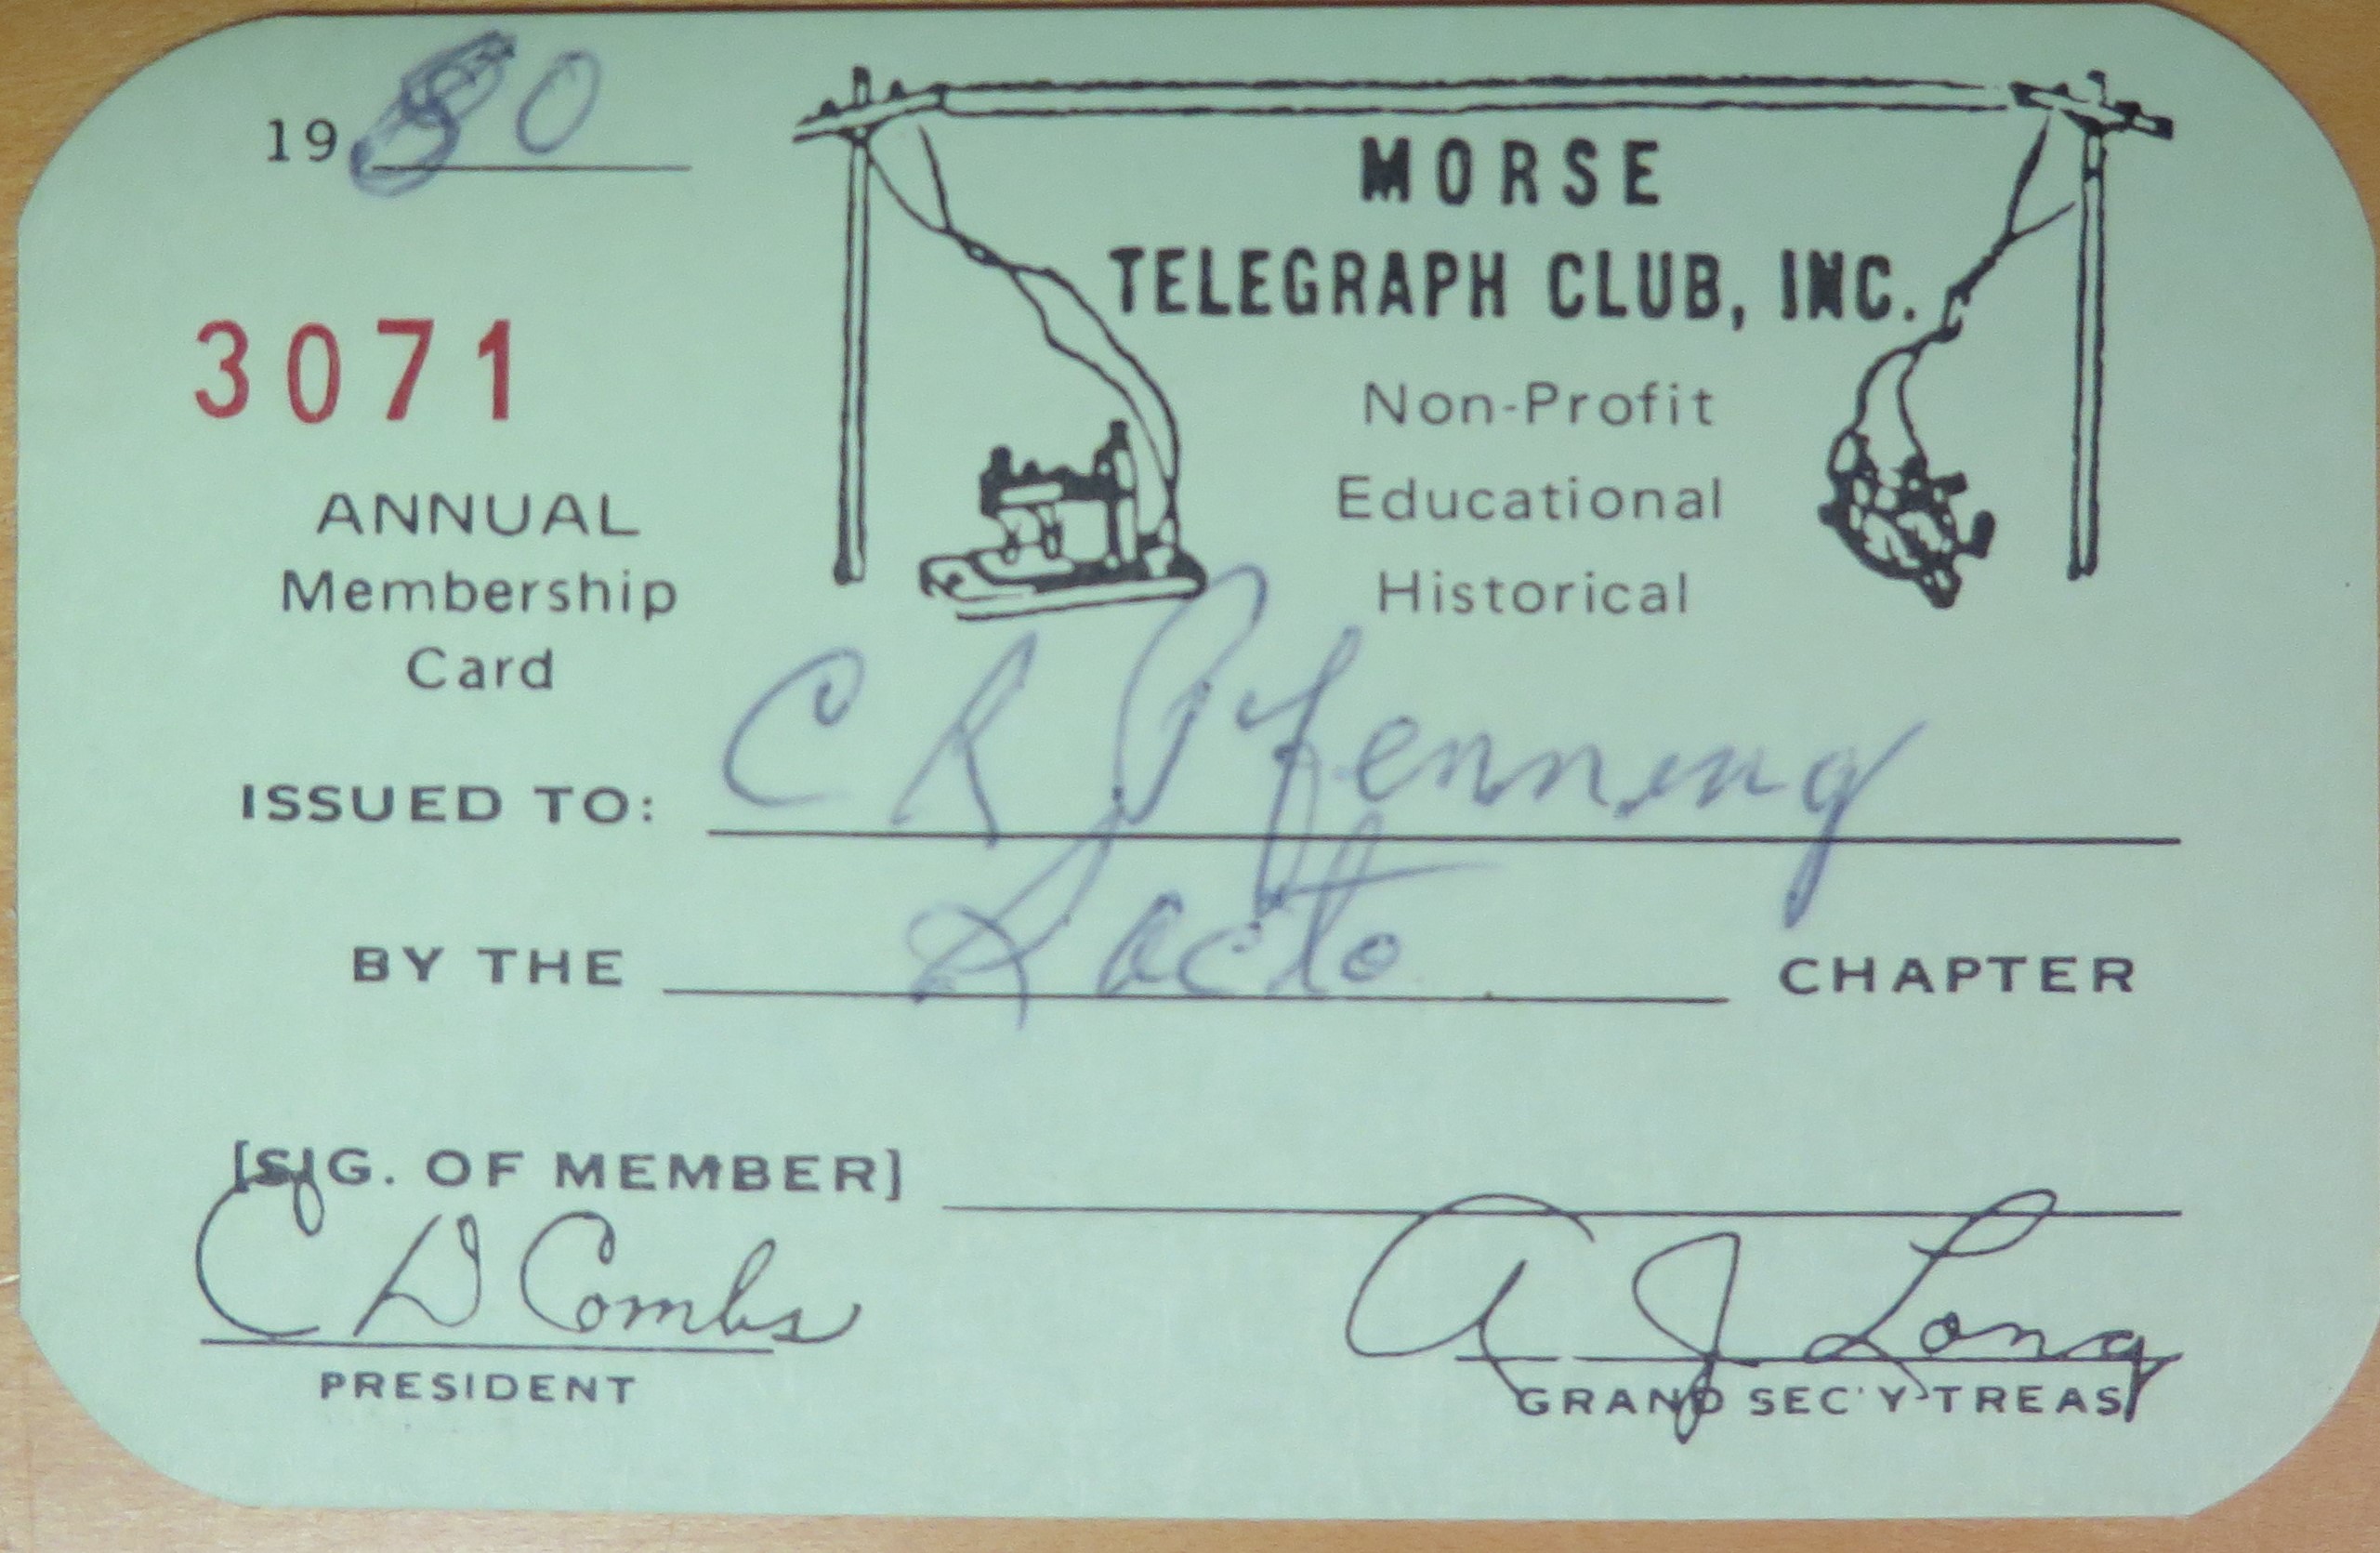 1980
MORSE
TELEGRAPH CLUB, INC.
3071
Non-Profit
Educational
Historical
ANNUAL
Membership
Card
ISSUED TO: C R Pfenning
BY THE Sacto CHAPTER
[SIG. OF MEMBER]
C D Combs
PRESIDENT
A J Long
GRAND SEC'Y-TREAS